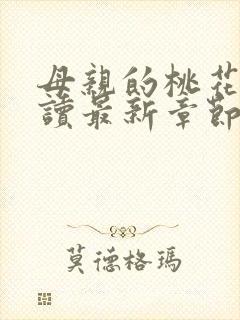 母親的桃花
讀最新章節
莫德格瑪